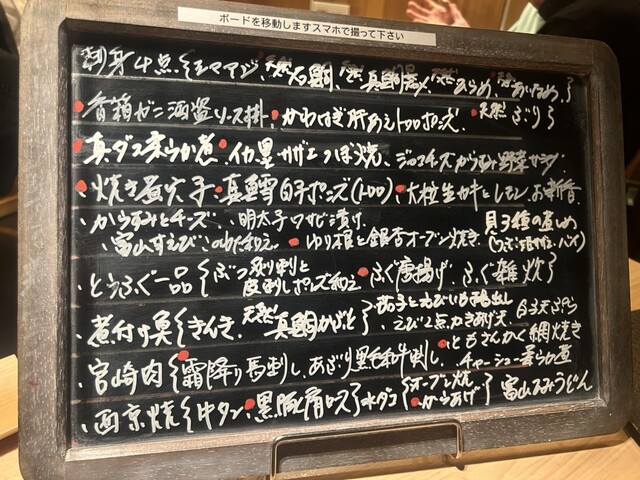 ボードを移動しますスマホで撮って下さい
刺身4点{シマアジ、天然石鯛、天然真鯛 天然ひらめ、あいなめ、}
香箱ガニ酒盗ソース掛、かわはぎ肝あえ1700ポンズ、天然ぶり
真ダコ柔らか煮・イカ墨サザエつぼ焼、チーズからすみ野菜サラダ
焼き煮穴子・真鱈白子ポンズ(1700)、大粒生カキとレモン お新香
からすみとチーズ、明太子ワサビ漬け、貝3種の盛り
富山すえび、ゆり根と銀杏オーブン焼き
とらふぐ一品{ぶつ炙り刺と皮刺しポンズ和え ・ふぐ唐揚げ、ふぐ雑炊}
煮付け魚{きんき、天然真鯛かぶと} えび2点かきあげ天 白子天ぷら
宮崎肉{霜降り馬刺し、あぶり黒毛和牛刺し、とちさんかく網焼き チャーシュー柔らか煮
西京焼{牛タン・黒豚肩ロース} 水ダコ{オーブン焼 からあげ} 富山うどん